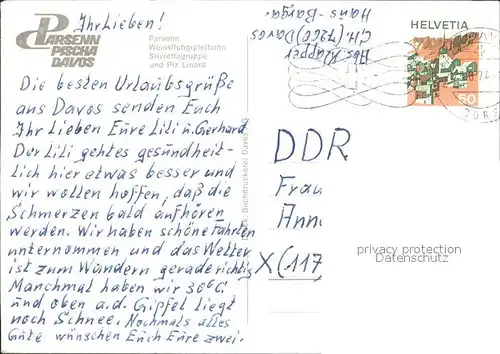 Ihr Lieben!
PARSENN
PISCHA
DAVOS
Parsenn
Weissfluhgipfelbahn
Silvrettagruppe
und Piz Linard
Die besten Urlaubsgrüße
aus Davos senden Euch
Ihr Lieben Eure Lili u. Gerhard
Der Lili geht es gesundheit-
lich hier etwas besser und
wir wollen hoffen, daß die
Schmerzen bald aufhören
werden. Wir haben schöne Fahrten
unternommen und das Wetter
ist zum Wandern gerade richtig
Manchmal haben wir 30°C
und oben a.d. Gipfel liegt
noch Schnee. Nochmals alles
Gute wünschen Euch Eure zwei.
Buchdruckerei Davos
Abs. Klapper
CH (7260) Davos
Haus-
HELVETIA
50
DDR
Frau
Ann
X (117
privacy protection
Datenschutz